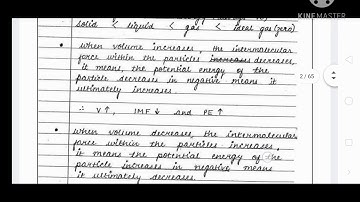 KINEMASTER
solid < liquid < gas < ideal gas (zero)
2 / 65
• when volume increases, the intermolecular
force within the particles increases decreases,
it means, the potential energy of the
particle decreases in negative means it
ultimately increases.
∴ V↑, IMF↓ and PE↑
• when volume decreases, the intermolecular
force within the particles increases,
it means the potential energy of the
particle increases in negative means
it ultimately decreases.